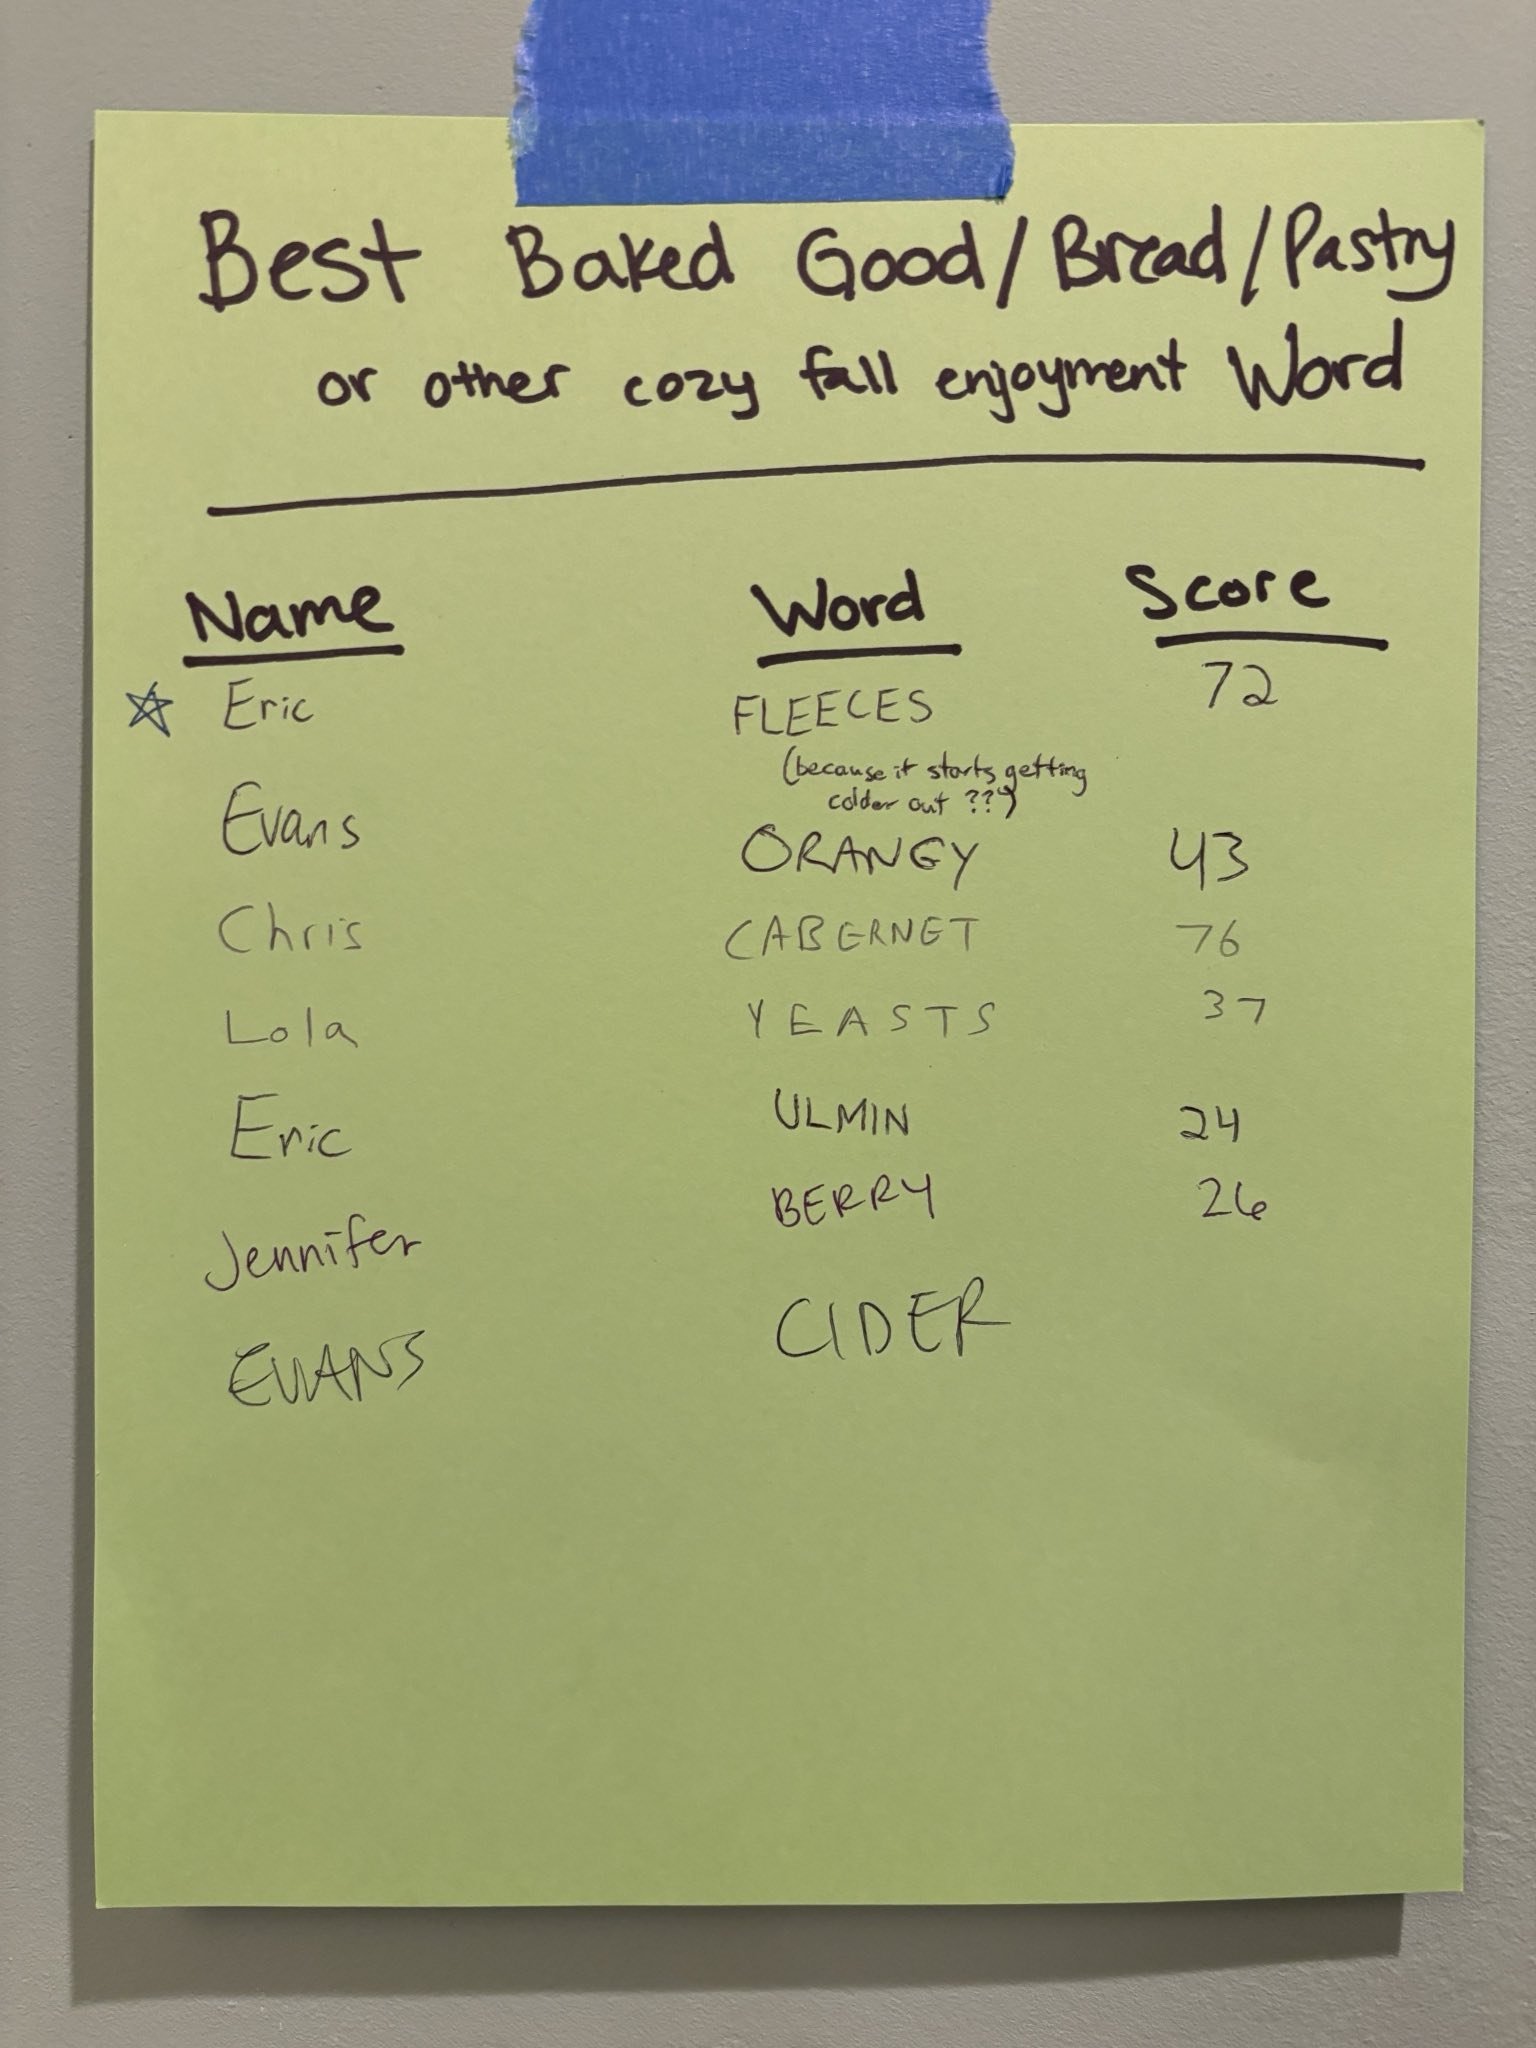 Best Baked Good/Bread/Pastry
or other cozy fall enjoyment Word
Name Word Score
☆ Eric FLEECES 72
(because it starts getting
colder out ???)
Evans ORANGY 43
Chris CABERNET 76
Lola YEASTS 37
Eric ULMIN 24
Jennifer BERRY 26
EVANS CIDER